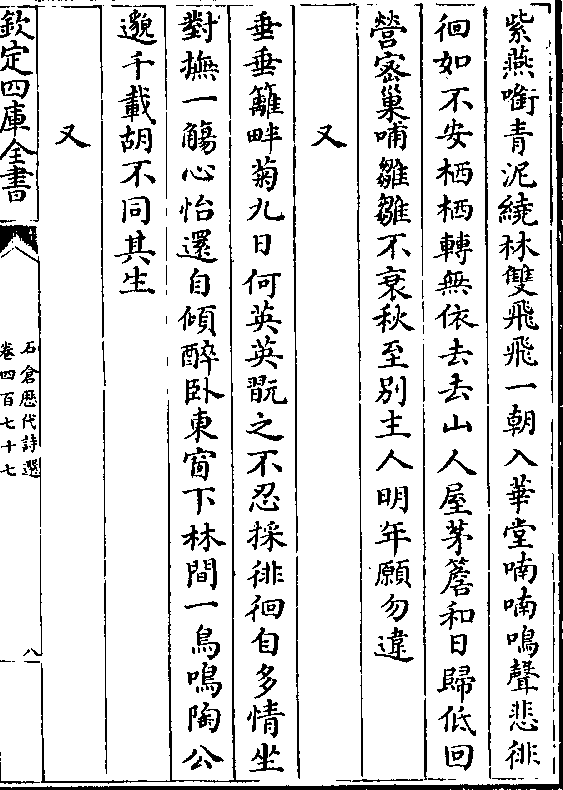 紫燕啣青泥繞林雙飛飛一朝入華堂喃喃鳴聲悲徘
徊如不安栖栖轉無依去去山人屋茅簷和日歸低回
營宻巢哺雛雛不衰秋至别主人明年願勿違
又
垂垂籬畔菊九日何英英翫之不忍採徘徊自多情坐
對撫一觴心怡還自傾醉卧東窗下林間一鳥鳴陶公
邈千載胡不同其生
又
欽定四庫全書
石倉歴代詩選
卷四百七十七
八